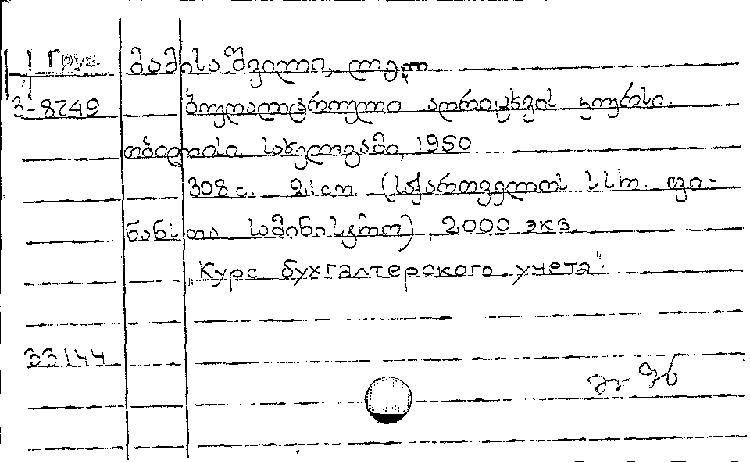 Груз. მამისაშვილი, ლეო
3-8249 ბუღალტრული აღრიცხვის კურსი.
თბილისი სახელგამი, 1950
308 с. (საქართველოს სსრ. ფი-
ნანსთა სამინისტრო), 2000 экз.
„Курс бухгалтерского учета"
33144